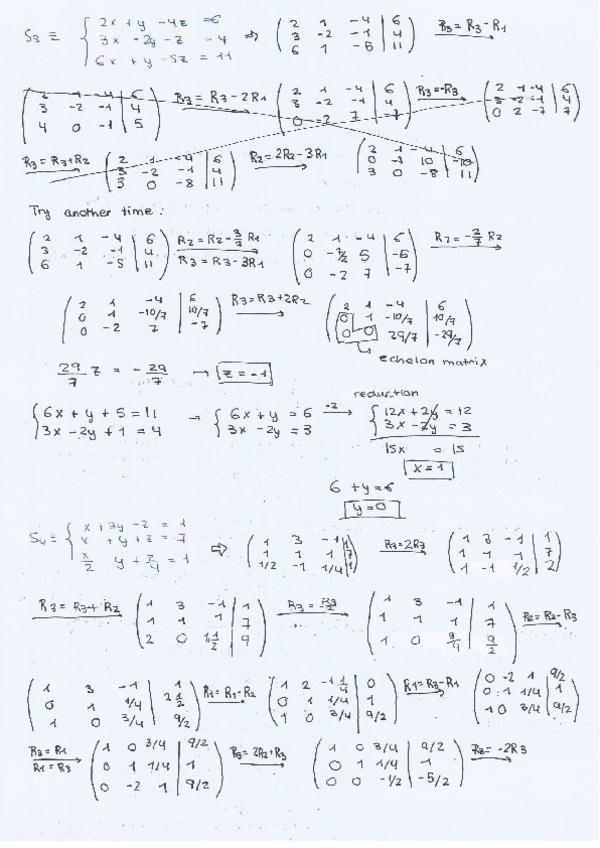 S3 ≡ { 2x + y - 4z = 6
3x - 2y - z = 4
6x + y - 5z = 11
⇒ ( 2 1 -4 | 6
3 -2 -1 | 4
6 1 -5 | 11 ) R3 = R3 - R1 →
( 2 1 -4 | 6
3 -2 -1 | 4
4 0 -1 | 5 ) R3 = R3 - 2R1 →
( 2 1 -4 | 6
3 -2 -1 | 4
0 -2 7 | -7 ) R3 = -R3 →
( 2 1 -4 | 6
3 -2 -1 | 4
0 2 -7 | 7 )
R3 = R3 + R2 →
( 2 1 -4 | 6
3 -2 -1 | 4
3 0 -8 | 11 ) R2 = 2R2 - 3R1 →
( 2 1 -4 | 6
0 -7 10 | -10
3 0 -8 | 11 )
Try another time:
( 2 1 -4 | 6
3 -2 -1 | 4
6 1 -5 | 11 )
R3 = R3 - 3R1 →
( 2 1 -4 | 6
0 -7/2 5 | -5
0 -2 7 | -7 ) R2 = -2/7 R2 →
( 2 1 -4 | 6
0 1 -10/7 | 10/7
0 -2 7 | -7 ) R3 = R3 + 2R2 →
( 2 1 -4 | 6
0 1 -10/7 | 10/7
0 0 29/7 | -29/7 )
echelon matrix
29/7 z = - 29/7 → z = -1
reduction
{ 6x + y + 5 = 11
3x - 2y + 1 = 4
→ { 6x + y = 6
3x - 2y = 3
·2 → { 12x + 2y = 12
3x - 2y = 3
15x = 15
x = 1
6 + y = 6
y = 0
S4 ≡ { x + 3y - z = 1
x + y + z = 7
x/2 y + z/4 = 1
⇒ ( 1 3 -1 | 1
1 1 1 | 7
1/2 -1 1/4 | 1 ) R3 = 2R3 →
( 1 3 -1 | 1
1 1 1 | 7
1 -1 1/2 | 2 )
R3 = R3 + R2 →
( 1 3 -1 | 1
1 1 1 | 7
2 0 1 1/2 | 9 ) R3 = R3/2 →
( 1 3 -1 | 1
1 1 1 | 7
1 0 3/4 | 9/2 ) R2 = R2 - R3 →
( 1 3 -1 | 1
0 1 1/4 | 2 1/2
1 0 3/4 | 9/2 ) R1 = R1 - R2 →
( 1 2 -1 1/4 | 0
0 1 1/4 | 1
1 0 3/4 | 9/2 ) R1 = R3 - R1 →
( 0 -2 1 | 9/2
0 1 1/4 | 1
1 0 3/4 | 9/2 )
R3 = R1
R1 = R3 →
( 1 0 3/4 | 9/2
0 1 1/4 | 1
0 -2 1 | 9/2 ) R3 = 2R2 + R3 →
( 1 0 3/4 | 9/2
0 1 1/4 | 1
0 0 -1/2 | -5/2 ) R3 = -2R3 →